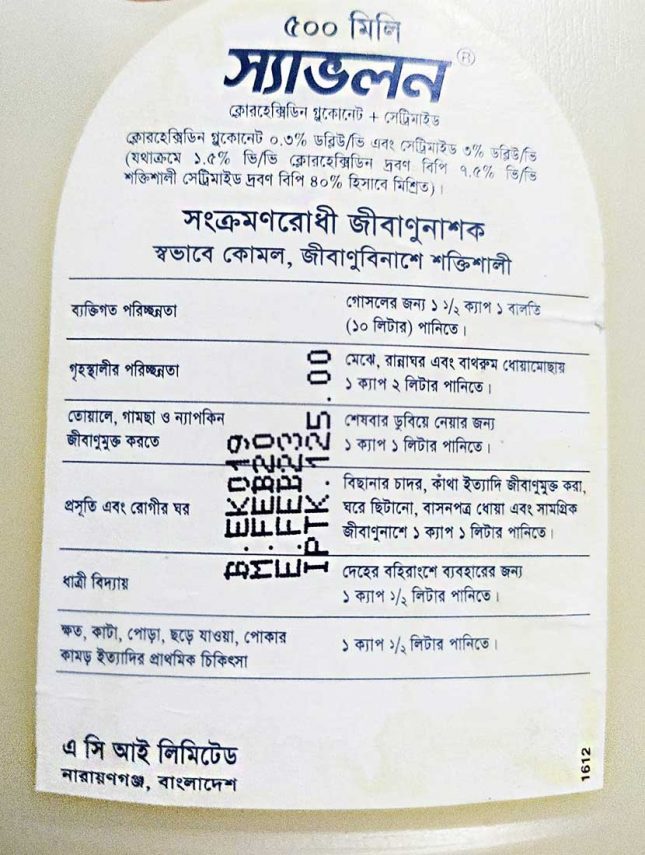 ৫০০ মিলি
স্যাভলন®
ক্লোরহেক্সিডিন গ্লুকোনেট + সেট্রিমাইড
ক্লোরহেক্সিডিন গ্লুকোনেট ০.৩% ডব্লিউ/ভি এবং সেট্রিমাইড ৩% ডব্লিউ/ভি
(যথাক্রমে ১.৫% ভি/ভি ক্লোরহেক্সিডিন দ্রবণ বিপি ৭.৫% ভি/ভি
শক্তিশালী সেট্রিমাইড দ্রবণ বিপি ৪০% হিসাবে মিশ্রিত)।
সংক্রমণরোধী জীবাণুনাশক
স্বভাবে কোমল, জীবাণুবিনাশে শক্তিশালী
ব্যক্তিগত পরিচ্ছন্নতা
গোসলের জন্য ১ ১/২ ক্যাপ ১ বালতি
(১০ লিটার) পানিতে।
গৃহস্থালীর পরিচ্ছন্নতা
মেঝে, রান্নাঘর এবং বাথরুম ধোয়ামোছায়
১ ক্যাপ ২ লিটার পানিতে।
তোয়ালে, গামছা ও ন্যাপকিন
জীবাণুমুক্ত করতে
শেষবার ডুবিয়ে নেয়ার জন্য
১ ক্যাপ ১ লিটার পানিতে।
প্রসূতি এবং রোগীর ঘর
বিছানার চাদর, কাঁথা ইত্যাদি জীবাণুমুক্ত করা,
ঘরে ছিটানো, বাসনপত্র ধোয়া এবং সামগ্রিক
জীবাণুনাশে ১ ক্যাপ ১ লিটার পানিতে।
ধাত্রী বিদ্যায়
দেহের বহিরাংশে ব্যবহারের জন্য
১ ক্যাপ ১/২ লিটার পানিতে।
ক্ষত, কাটা, পোড়া, ছড়ে যাওয়া, পোকার
কামড় ইত্যাদির প্রাথমিক চিকিৎসা
১ ক্যাপ ১/২ লিটার পানিতে।
B. EK019
M. FEB20
E. FEB23
IPTK. 125.00
এ সি আই লিমিটেড
নারায়ণগঞ্জ, বাংলাদেশ
1612